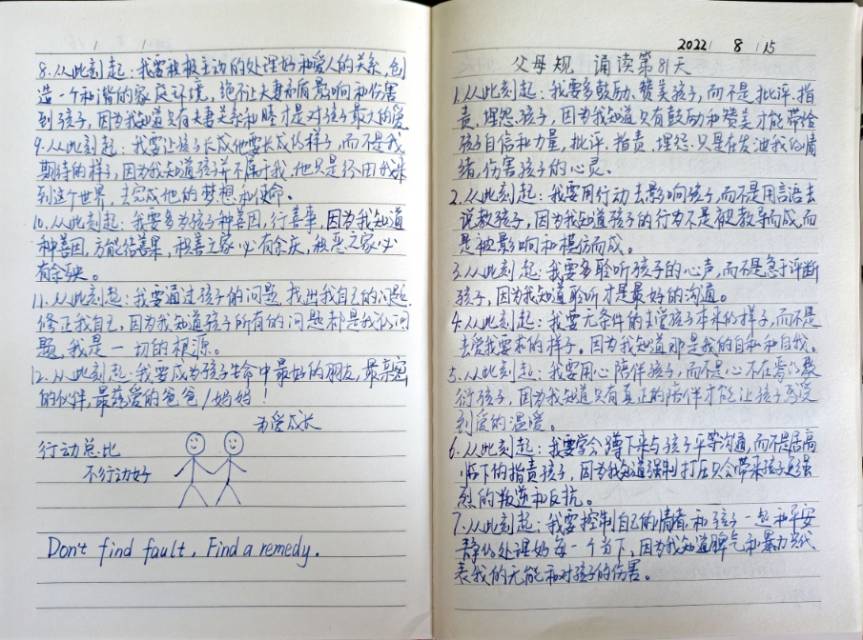 8.从此刻起:我要积极主动的处理好和爱人的关系,创
造一个和谐的家庭环境,绝不让夫妻矛盾影响和伤害
到孩子,因为我知道只有夫妻关系和睦才是对孩子最大的爱
9.从此刻起:我要让孩子长成他要长成的样子,而不是我
期待的样子,因为我知道孩子并不属于我,他只是经由我来
到这个世界,去完成他的梦想和使命。
10.从此刻起:我要多为孩子种善因,行善事,因为我知道
种善因,方能结善果,积善之家必有余庆,积恶之家必
有余殃。
11.从此刻起:我要通过孩子的问题找出我自己的问题,
修正我自己,因为我知道孩子所有的问题都是我的问
题,我是一切的根源。
12.从此刻起:我要成为孩子生命中最好的朋友,最亲密
的伙伴,最慈爱的爸爸/妈妈!
为爱成长
行动总比
不行动好
Don't find fault, Find a remedy.
2022 8 15
父母规 诵读第81天
1.从此刻起:我要多鼓励、赞美孩子,而不是批评、指
责、埋怨孩子,因为我知道只有鼓励和赞美才能带给
孩子自信和力量,批评、指责、埋怨只是在发泄我的情
绪,伤害孩子的心灵。
2.从此刻起:我要用行动去影响孩子,而不是用言语去
说教孩子,因为我知道孩子的行为不是被教导而成,而
是被影响和模仿而成。
3.从此刻起:我要多聆听孩子的心声,而不是急于评断
孩子,因为我知道聆听才是最好的沟通。
4.从此刻起:我要无条件的去爱孩子本来的样子,而不是
去爱我要求的样子。因为我知道那是我的自私和自我。
5.从此刻起:我要用心陪伴孩子,而不是心不在焉的敷
衍孩子,因为我知道只有真正的陪伴才能让孩子感受
到爱的温暖。
6.从此刻起:我要学会蹲下来与孩子平等沟通,而不是居高
临下的指责孩子,因为我知道强制打压只会带来孩子更强
烈的叛逆和反抗。
7.从此刻起:我要控制自己的情绪,和孩子一起和平安
静的处理好每一个当下,因为我知道脾气和暴力只代
表我的无能和对孩子的伤害。